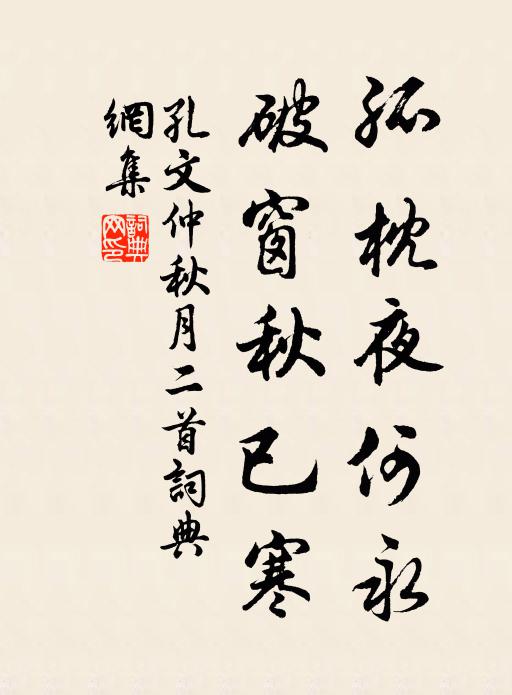 孤枕夜何永
破窗秋已寒
孔文仲秋月二首詞典
網集
詞典網印